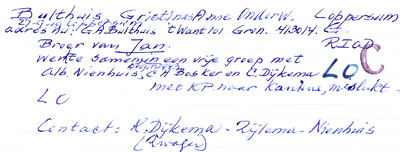 Bulthuis Gristinus Anne Onderw. Loppersum
adres nu: G.A. Bulthuis t Want 101 Gron. 413014. G.
Broer van Jan. RIOD
werkte samen in een vrije groep met
Alb. Nienhuis, C A Bosker en C. Dijkema LO C
met KP naar Kantens, mislukt -
LO
Contact: K. Dijkema - Zijlema - Nienhuis
(zwager)